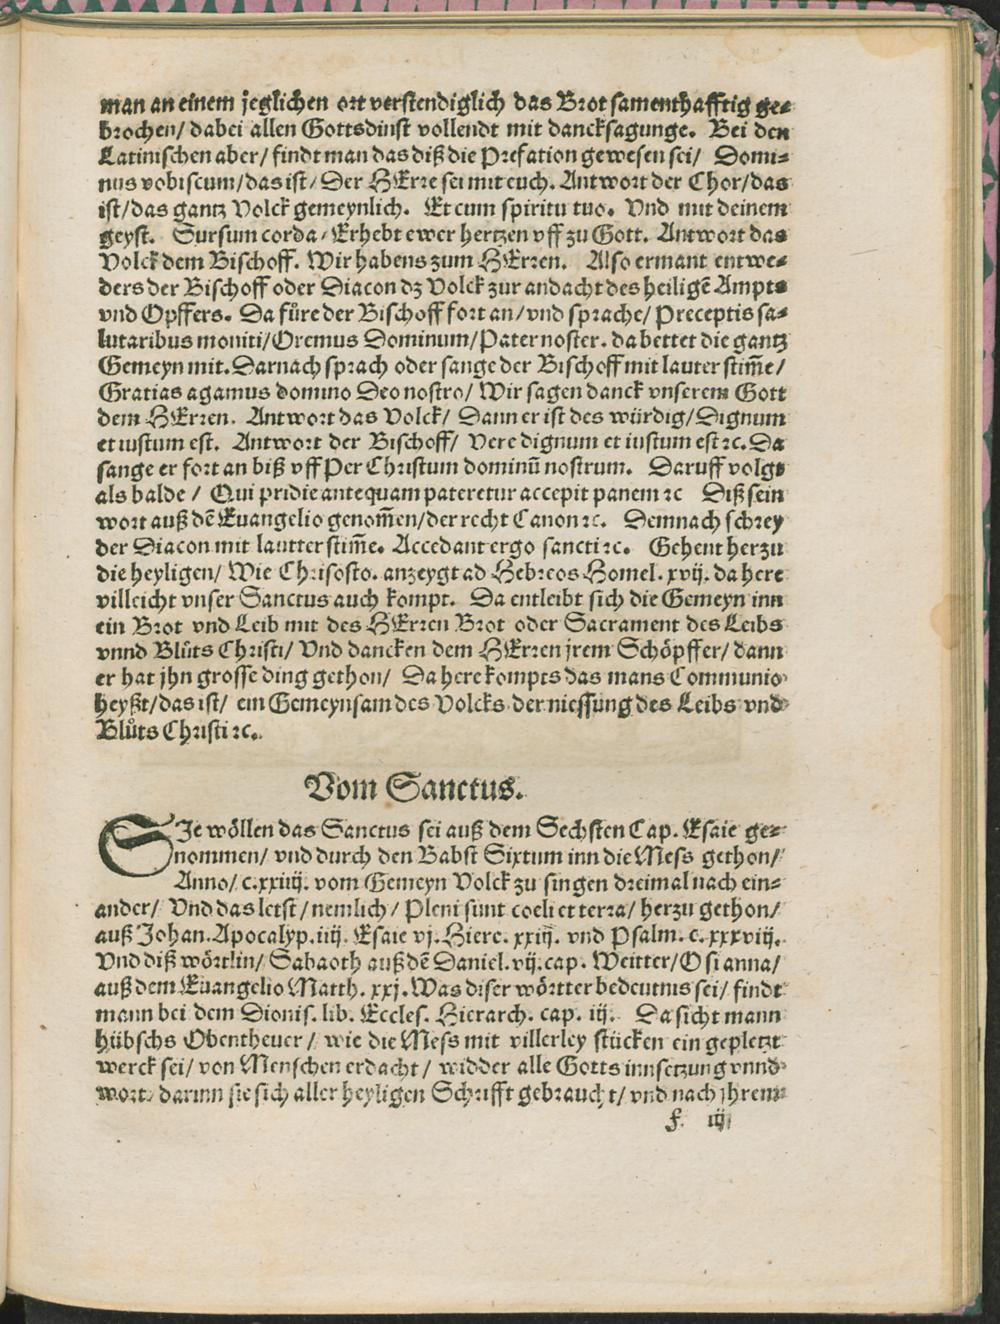 man an einem jeglichen ort verstendiglich das Brot samenthafftig ge⸗
brochen/ dabei allen Gottsdinst vollendt mit dancksagunge. Bei den
Latinischen aber/ findt man das diß die Prefation gewesen sei/ Domi⸗
nus vobiscum/ das ist/ Der HErre sei mit euch. Antwort der Chor/ das
ist/ das gantz Volck gemeynlich. Et cum spiritu tuo. Vnd mit deinem
geyst. Sursum corda/ Erhebt ewer hertzen vff zu Gott. Antwort das
Volck dem Bischoff. Wir habens zum HErren. Also ermant entwe⸗
ders der Bischoff oder Diacon dz Volck zur andacht des heiligē Ampts
vnd Opffers. Da fůre der Bischoff fort an/ vnd sprache/ Preceptis sa⸗
lutaribus moniti/ Oremus Dominum/ Pater noster. da bettet die gantz
Gemeyn mit. Darnach sprach oder sange der Bischoff mit lauter stim̄e/
Gratias agamus domino Deo nostro/ Wir sagen danck vnserem Gott
dem HErren. Antwort das Volck/ Dann er ist des würdig/ Dignum
et iustum est. Antwort der Bischoff/ Vere dignum et iustum est ꝛc. Da
sange er fort an biß vff Per Christum dominū nostrum. Daruff volgt
als balde / Qui pridie antequam pateretur accepit panem ꝛc Diß sein
wort auß dē Euangelio genom̄en/ der recht Canon ꝛc. Demnach schrey
der Diacon mit lautter stim̄e. Accedant ergo sancti ꝛc. Gehent herzu
die heyligen/ Wie Chrisosto. anzeygt ad Hebreos Homel. xvij. da here
villeicht vnser Sanctus auch kompt. Da entleibt sich die Gemeyn inn
ein Brot vnd Leib mit des HErren Brot oder Sacrament des Leibs
vnnd Blůts Christi/ Vnd dancken dem HErren jrem Schöpffer/ dann
er hat jhn grosse ding gethon/ Da here kompts das mans Communio
heyßt/ das ist/ ein Gemeynsam des Volcks der niessung des Leibs vnd
Blůts Christi ꝛc.
Vom Sanctus.
SIe wöllen das Sanctus sei auß dem Sechsten Cap. Esaie ge⸗
nommen/ vnd durch den Babst Sixtum inn die Mess gethon/
Anno/ c.xxiiij. vom Gemeyn Volck zu singen dreimal nach ein⸗
ander/ Vnd das letst/ nemlich/ Pleni sunt coeli et terra/ herzu gethon/
auß Johan. Apocalyp. iiij. Esaie vj. Hiere. xxiij. vnd Psalm. c.xxxviij.
Vnd diß wörtlin/ Sabaoth auß dē Daniel. vij. cap. Weitter/ Osianna/
auß dem Euangelio Matth. xxj. Was diser wörtter bedeutnis sei/ findt
mann bei dem Dionis. lib. Eccles. Hierarch. cap. iij. Da sicht mann
hübschs Obentheuer/ wie die Mess mit villerley stücken ein gepletzt
werck sei/ von Menschen erdacht/ widder alle Gotts innsetzung vnnd
wort/ darinn sie sich aller heyligen Schrifft gebraucht/ vnd nach jhrem
f iij